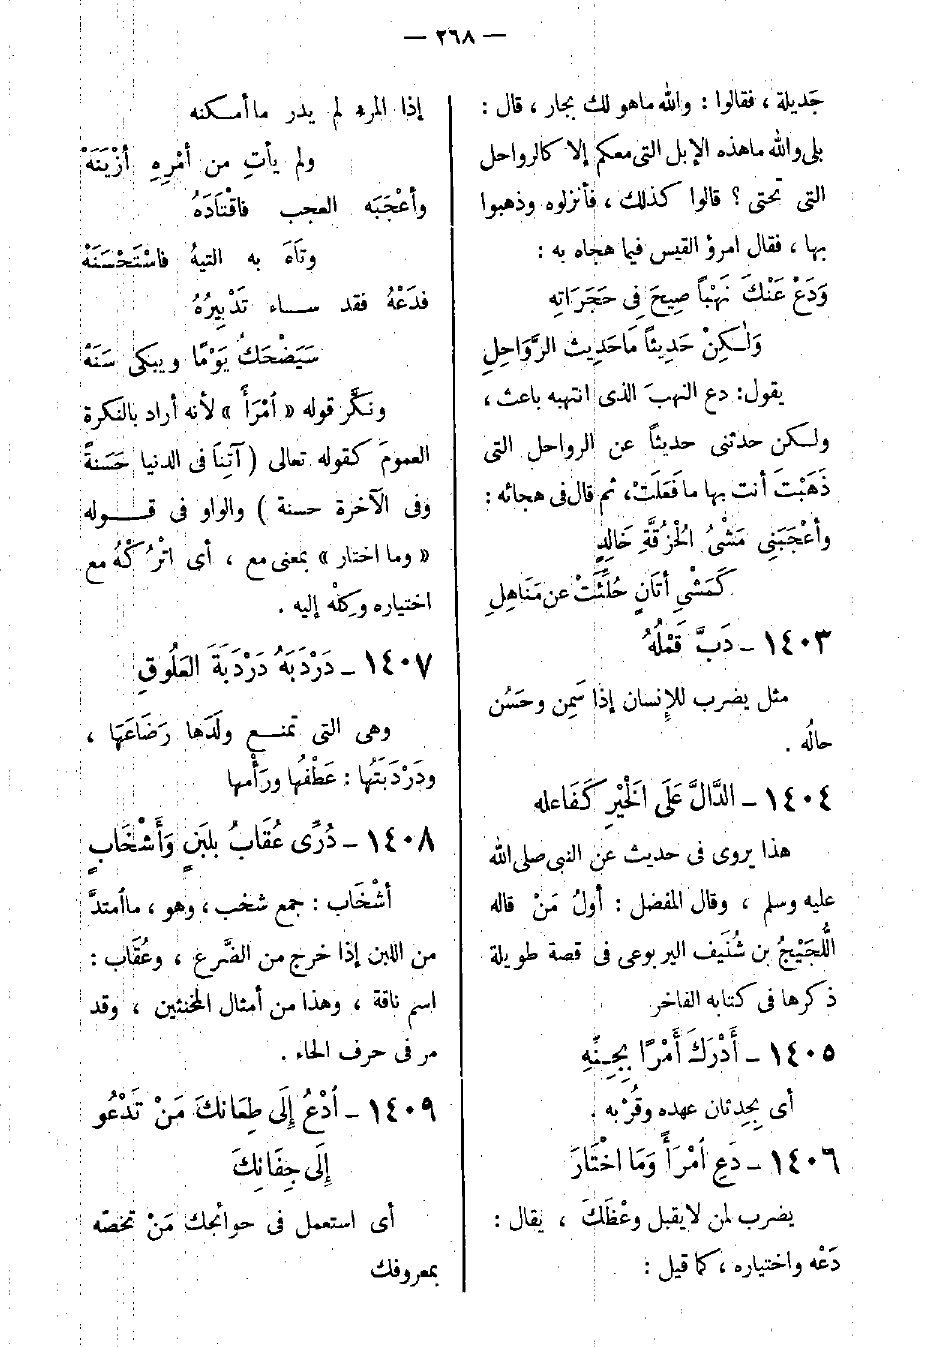 — ٢٦٨ —
جَديلة ، فقالوا : والله ماهو لك بجار ، قال :
بلى والله ماهذه الإبل التى معكم إلا كالرواحل
التى تحتى ؟ قالوا كذلك ، فأنزلوه وذهبوا
بها ، فقال امرؤ القيس فيما هجاه به :
وَدَعْ عَنْكَ نَهْباً صِيحَ فِى حَجَرَاتِهِ
وَلٰكِنْ حَدِيثاً مَاحَدِيث الرَّوَاحِلِ
يقول: دع النهبَ الذى انتهبه باعث ،
ولكن حدثنى حديثاً عن الرواحل التى
ذَهَبْتَ أنت بها مافَعَلَتْ، ثم قال فى هجائه :
وأعْجَبَنِى مَشْىُ الْحُزُقَّةِ خَالِدٍ
كَمَشْىِ أتَانٍ حُلِّئَتْ عن مَنَاهِلِ
١٤٠٣ – دَبَّ قَمْلُهُ
مثل يضرب للإنسان إذا سَمِن وحَسُن
حالُه .
١٤٠٤ – الدَّالَّ عَلَى الْخَيْرِ كَفَاعله
هذا يروى فى حديث عن النبى صلى الله
عليه وسلم ، وقال المفضل : أولُ مَنْ قاله
اللُّجَيْجُ بن شُنَيف اليربوعى فى قصة طويلة
ذكرها فى كتابه الفاخر
١٤٠٥ – أَدْرَكَ أَمْرًا بِجِنِّهِ
أى بِحِدْثان عهده وقُرْبه .
١٤٠٦ – دَعِ ٱمْرَأً وَمَا اخْتَارَ
يضرب لمن لايقبل وعْظَكَ ، يقال :
دَعْه واختياره ، كما قيل :
إذا المرء لم يدر ماأمكنه
ولم يأتِ من أمْرِهِ أزْيَنَهْ
وأعْجَبَه العجب فاقْتَادَهُ
وتَاهَ به التيهُ فاسْتَحْسَنَهْ
فدَعْهُ فقد ساء تَدْبِيرُهُ
سَيَضْحَكُ يَوْمًا ويبكى سَنَهْ
ونكَّر قوله « ٱمْرَأً » لأنه أراد بالنكرة
العمومَ كقوله تعالى ( آتِنا فى الدنيا حَسَنةً
وفى الآخرة حسنة ) والواو فى قوله
« وما اختار » بمعنى مع ، أى اتْرُكْهُ مع
اختياره وكِلْه إليه .
١٤٠٧ – دَرْدَبَهُ دَرْدَبَةَ العَلُوقِ
وهى التى تمنع ولَدَها رَضَاعَهَا ،
ودَرْدَبَتُها : عَطْفُها ورَأْمها
١٤٠٨ – دُرِّى عُقَابُ بلَبَنٍ وَأَشْخَابٍ
أشْخَاب : جمع شخب ، وهو ، ماٱمتدَّ
من اللبن إذا خرج من الضَّرع ، وعُقَاب :
اسم ناقة ، وهذا من أمثال المخنثين ، وقد
مر فى حرف الحاء .
١٤٠٩ – ٱدْعُ إِلَى طِعَانِكَ مَنْ تَدْعُو
إِلَى جِفَانِكَ
أى استعمل فى حوائجك مَنْ تخصّه
بمعروفك